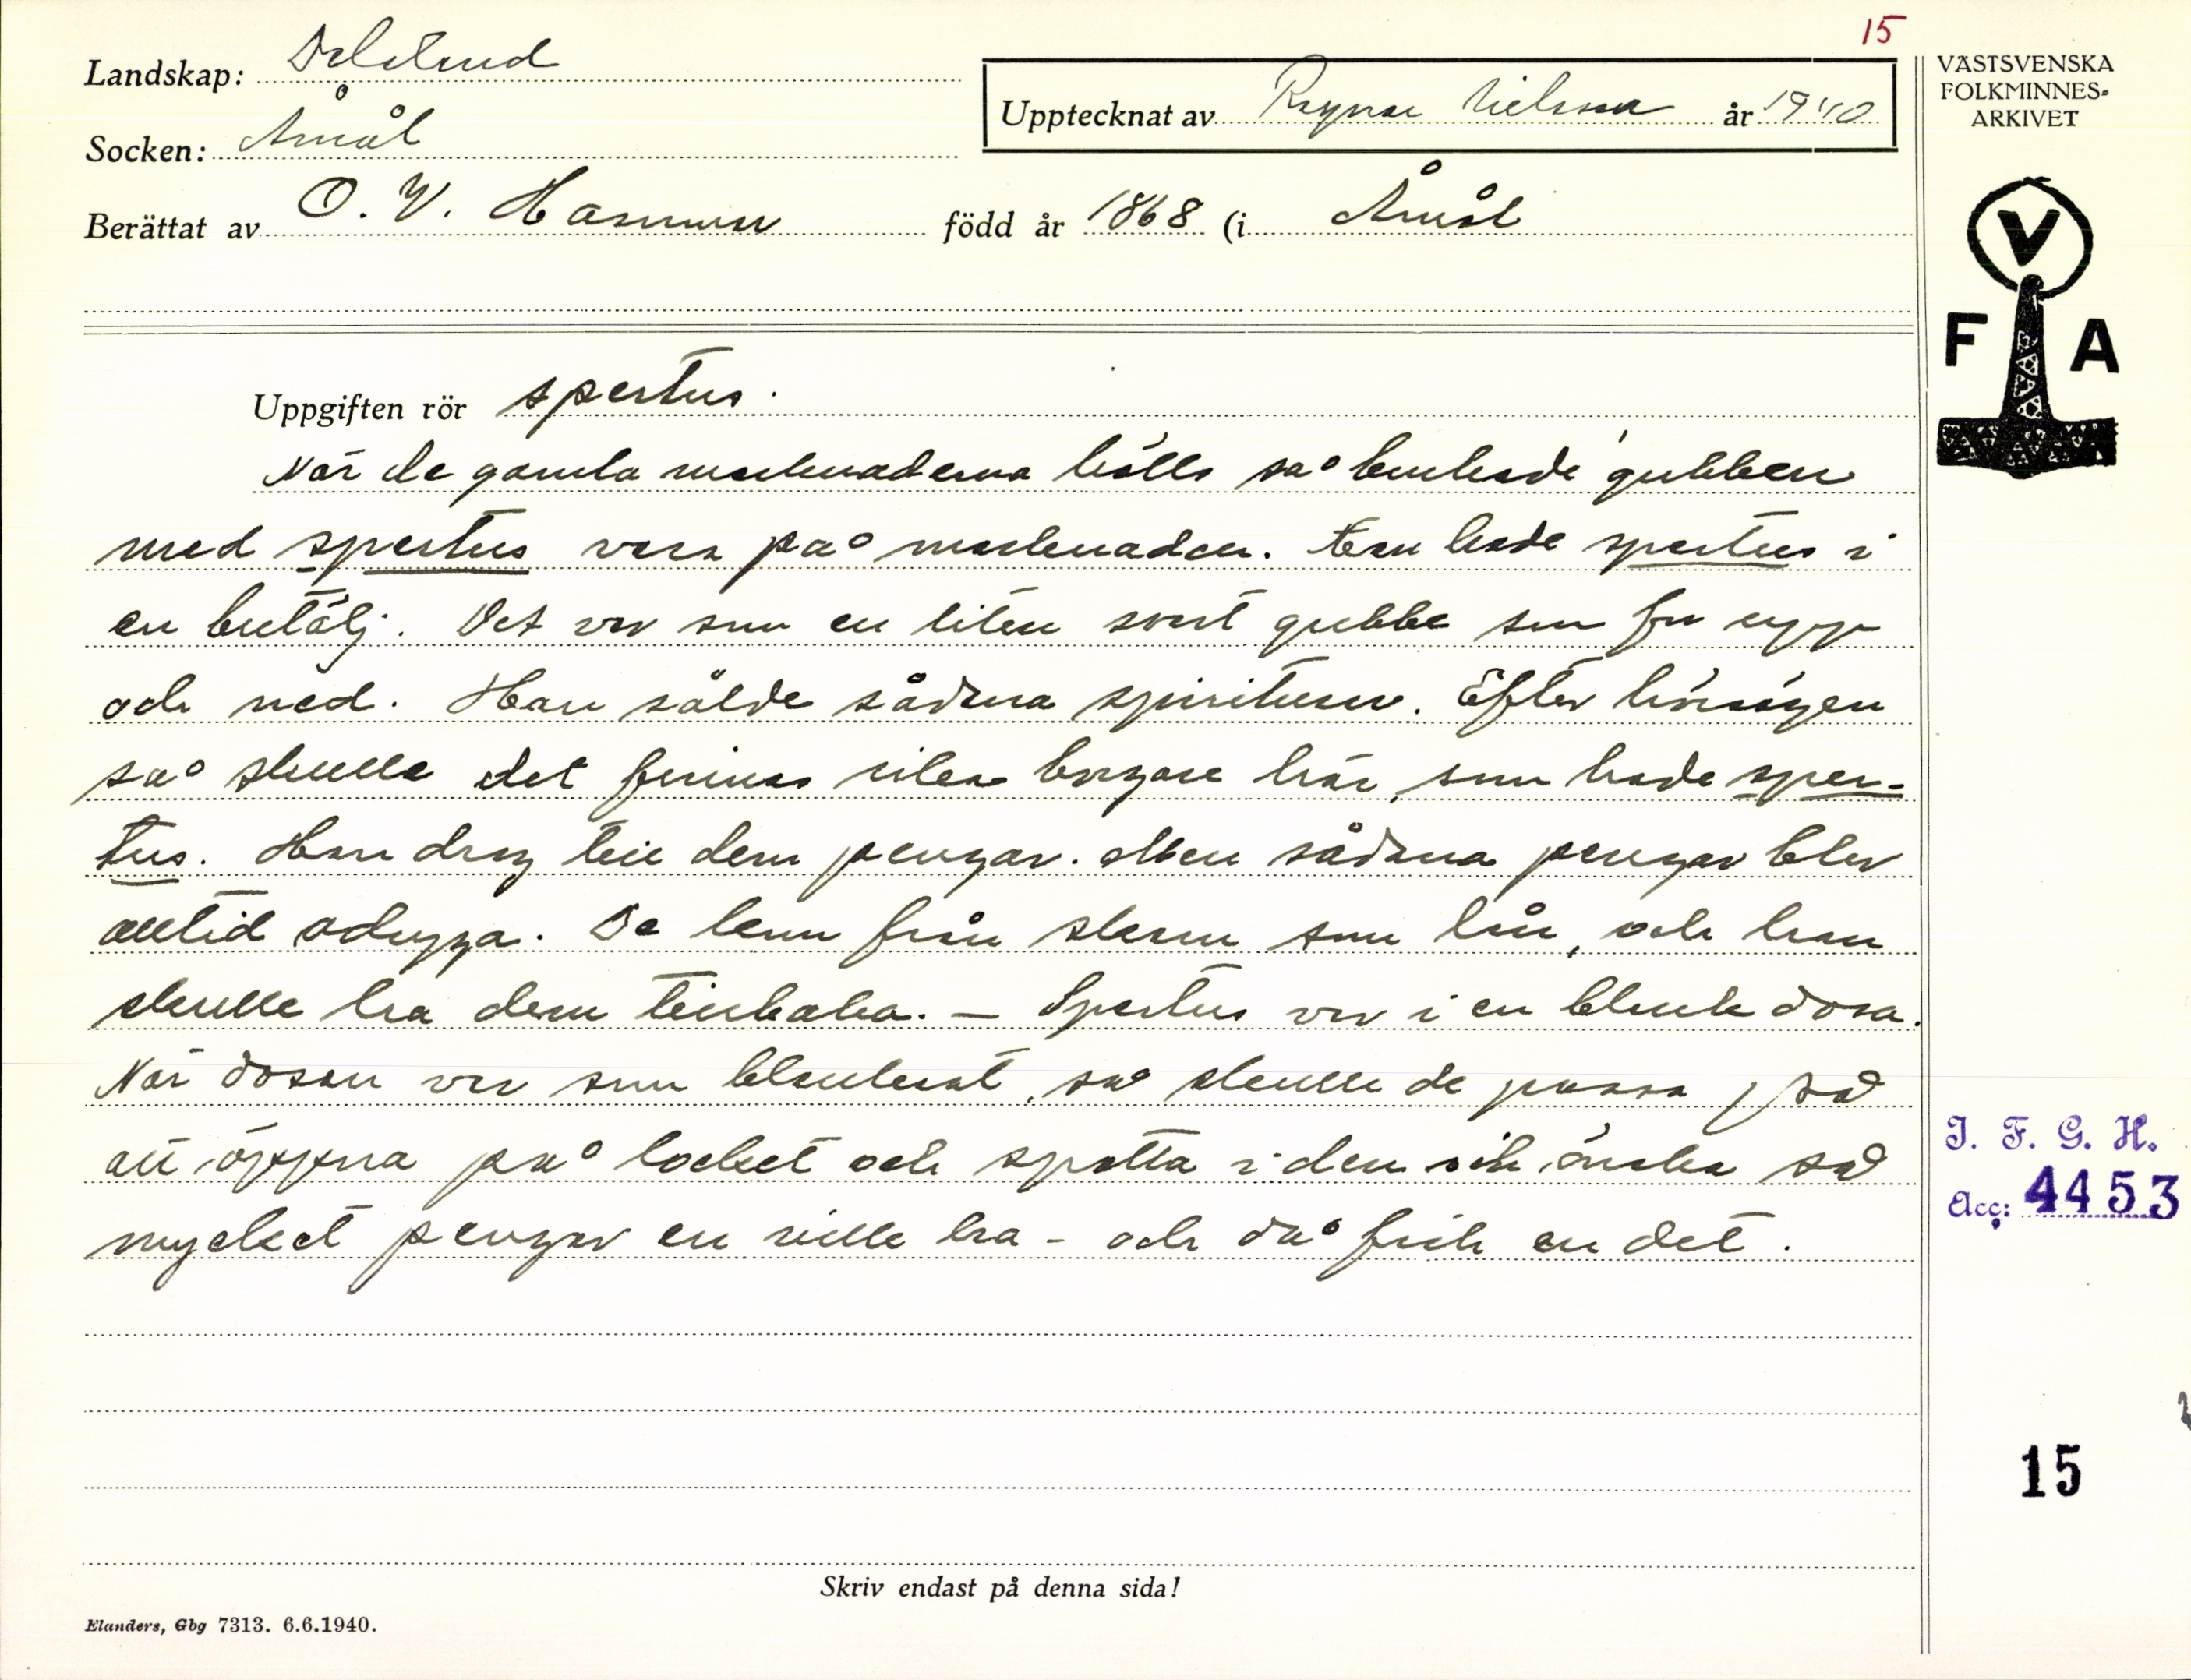 15
Landskap: Dalsland
Socken: Åmål
Upptecknat av Ragnar Nilsson år 1940
Berättat av O. V. Hannus född år 1868 (i Åmål
VÄSTSVENSKA
FOLKMINNES-
ARKIVET
V
F A
Uppgiften rör spertus.
När de gamla marknaderna hölls så brukade gubben
med spertus vara på marknaden. Han hade spertus i
en butälj. Det var som en liten svart gubbe som for upp
och ned. Han sålde sådana spiritusar. Efter hörsägen
så skulle det finnas rika borgare här, som hade sper-
tus. Han drog till dem pengar. Men sådana pengar blev
alltid odryga. De kom från skam som lån, och han
skulle ha dem tillbaka. — Spertus var i en blank dosa.
När dosan var som blankast, så skulle de passa på
att öppna på locket och spotta i den och önska så
mycket pengar en ville ha - och då fick en det.
I. F. G. H.
Acc: 4453
15
Skriv endast på denna sida!
Elanders, Gbg 7313. 6.6.1940.